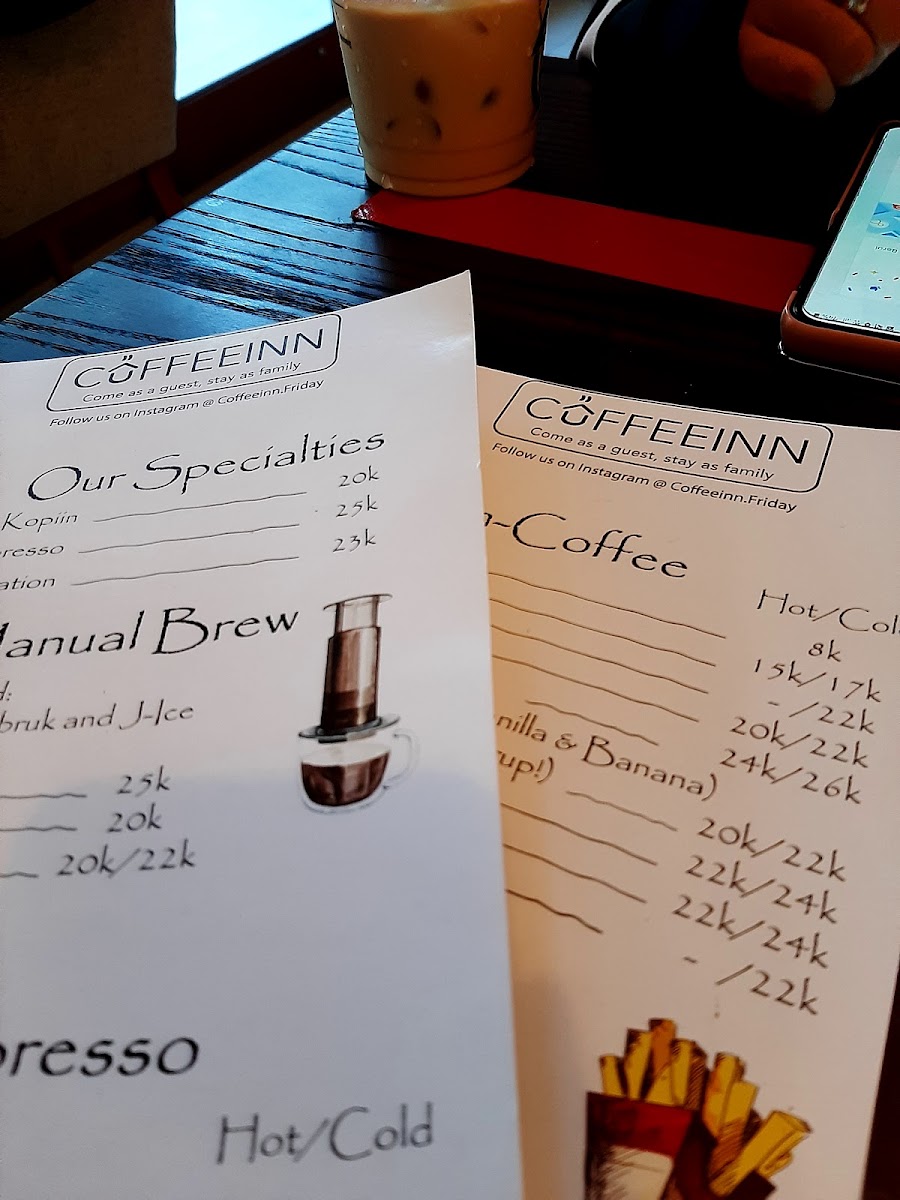 COFFEEINN
Come as a guest, stay as family
Follow us on Instagram @ Coffeeinn.Friday
Our Specialties
Kopiin 20k
resso 25k
ation 23k
Manual Brew
d:
bruk and J-Ice
25k
20k
20k/22k
presso
Hot/Cold
COFFEEINN
Come as a guest, stay as family
Follow us on Instagram @ Coffeeinn.Friday
-Coffee
Hot/Col
8k
15k/17k
- /22k
20k/22k
24k/26k
nilla & Banana)
up!)
20k/22k
22k/24k
22k/24k
- /22k